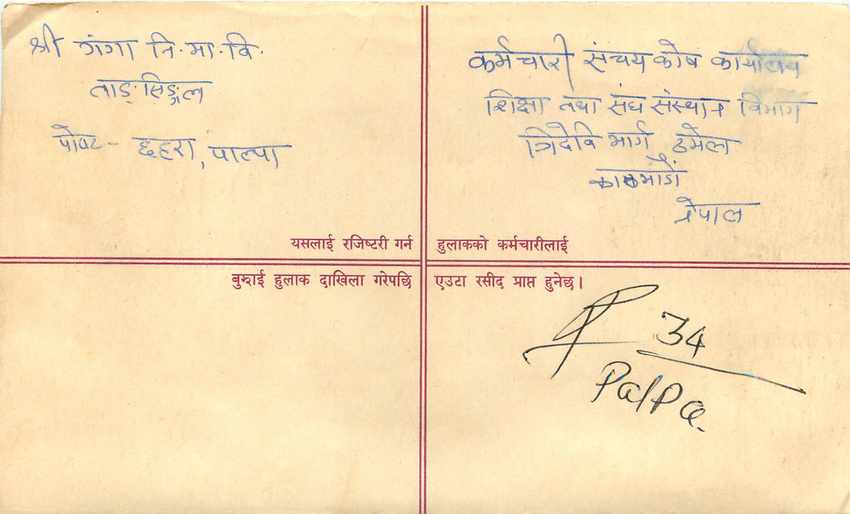 श्री गंगा नि. मा. वि.
ताङसिङ्गल
पोष्ट - छहरा, पाल्पा
कर्मचारी संचय कोष कार्यालय
शिक्षा तथा संघ संस्थान विभाग
त्रिदेवि मार्ग ठमेल
नेपाल
यसलाई रजिष्टरी गर्न हुलाकको कर्मचारीलाई
बुझाई हुलाक दाखिला गरेपछि एउटा रसीद प्राप्त हुनेछ।
34
Palpa.